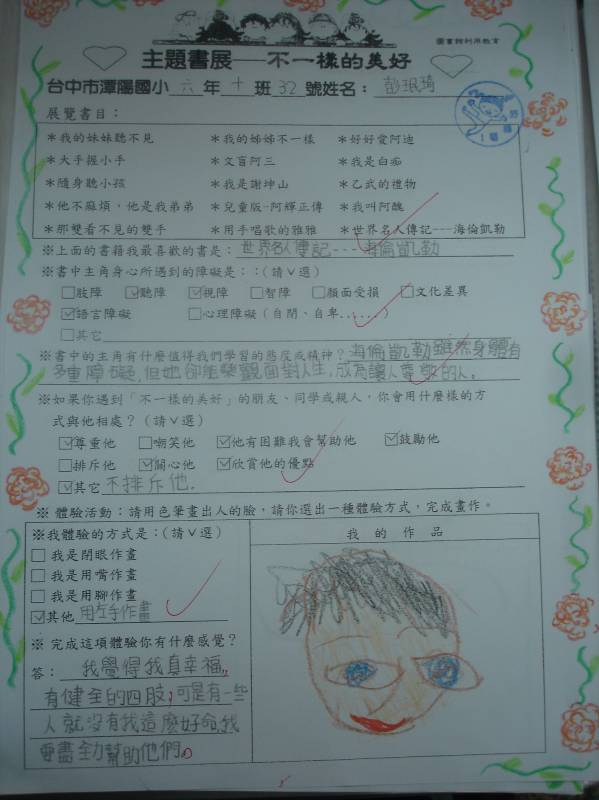 圖書館利用教育
主題書展──不一樣的美好
台中市潭陽國小 六 年 十 班 32 號姓名: 彭珉琦
展覽書目:
*我的妹妹聽不見 *我的姊姊不一樣 *好好愛阿迪
*大手握小手 *文盲阿三 *我是白痴
*隨身聽小孩 *我是謝坤山 *乙武的禮物
*他不麻煩,他是我弟弟 *兒童版-阿輝正傳 *我叫阿醜
*那雙看不見的雙手 *用手唱歌的雅雅 *世界名人傳記---海倫凱勒
※上面的書籍我最喜歡的書是: 世界名人傳記---海倫凱勒
※書中主角身心所遇到的障礙是::(請∨選)
□肢障 ☑聽障 ☑視障 □智障 □顏面受損 □文化差異
☑語言障礙 □心理障礙(自閉、自卑......)
□其它
※書中的主角有什麼值得我們學習的態度或精神? 海倫凱勒雖然身體有
多重障礙,但她卻能樂觀面對人生,成為讓人尊敬的人。
※如果你遇到「不一樣的美好」的朋友、同學或親人,你會用什麼樣的方
式與他相處?(請∨選)
☑尊重他 □嘲笑他 ☑他有困難我會幫助他 ☑鼓勵他
□排斥他 ☑關心他 ☑欣賞他的優點
☑其它 不排斥他.
※ 體驗活動:請用色筆畫出人的臉,請你選出一種體驗方式,完成畫作。
※我體驗的方式是:(請∨選)
□ 我是閉眼作畫
□ 我是用嘴作畫
□ 我是用腳作畫
☑ 其他 用左手作畫
※ 完成這項體驗你有什麼感覺?
答: 我覺得我真幸福,
有健全的四肢,可是有一些
人就沒有我這麼好命,我
要盡全力幫助他們。
我 的 作 品